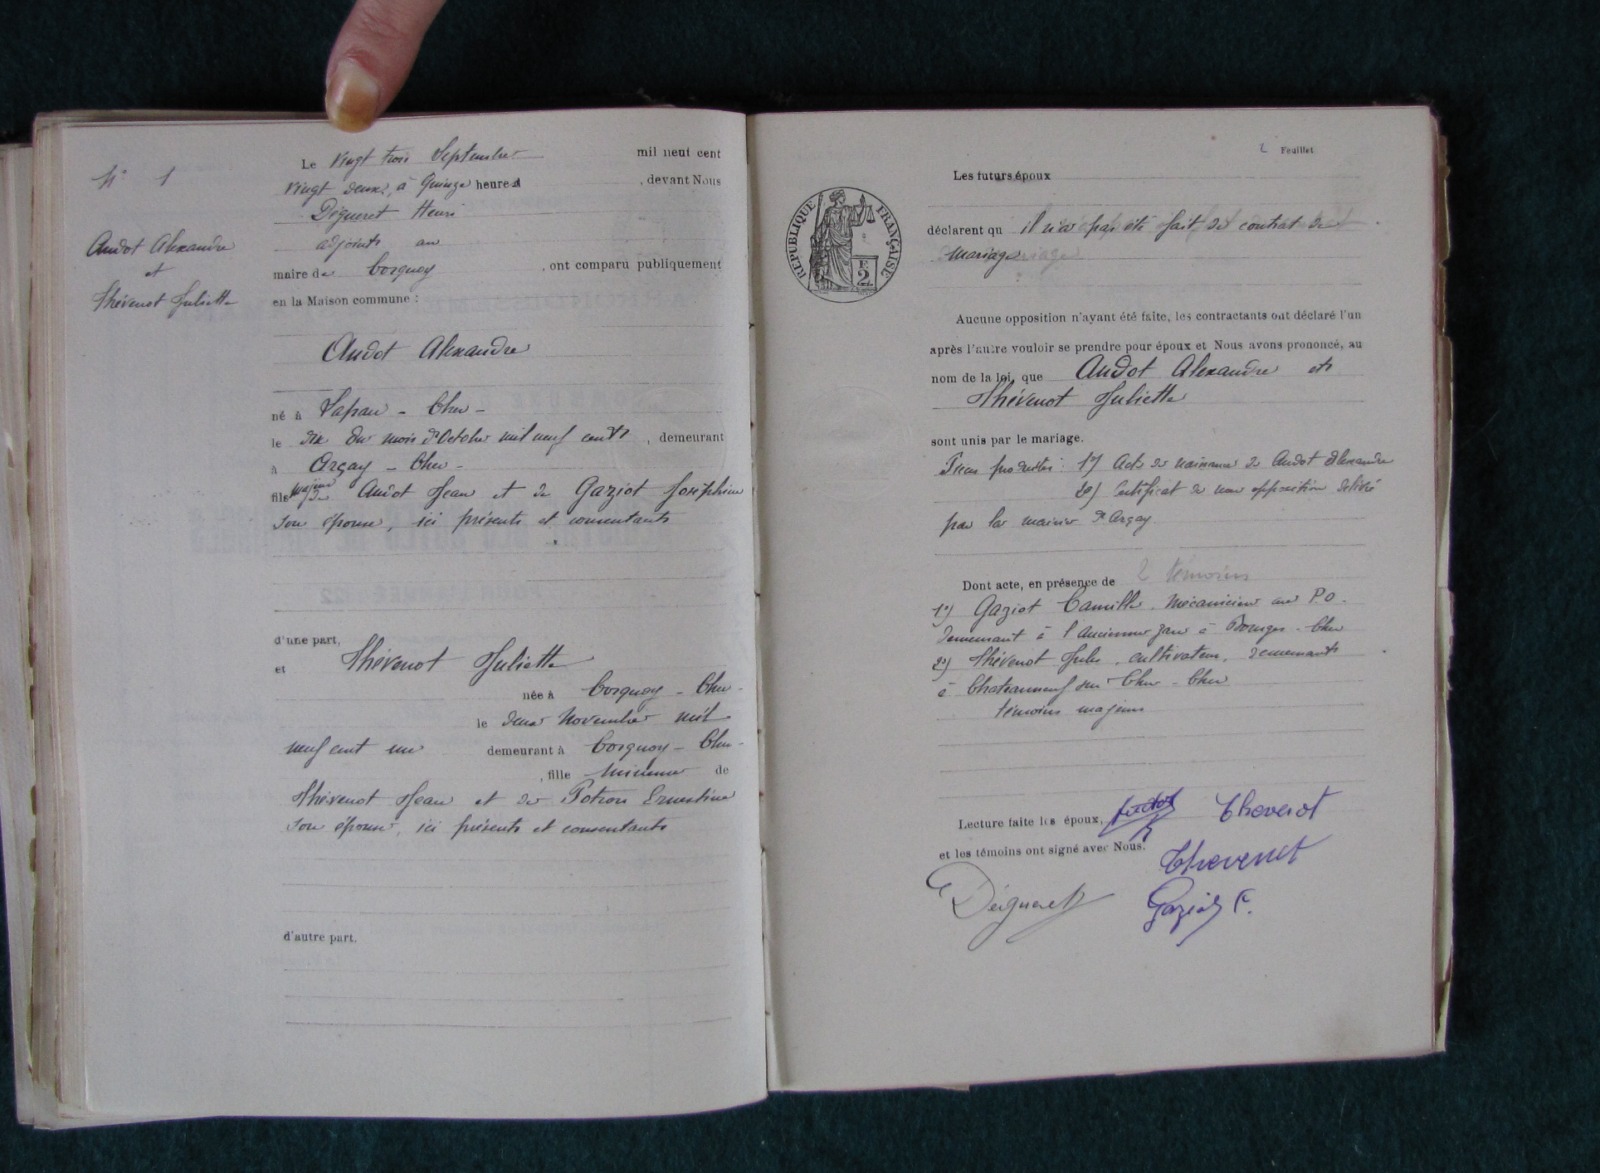 N° 1
Audot Alexandre
et
Thévenot Juliette
Le vingt trois Septembre mil neuf cent
vingt deux, à Quinze heures, devant Nous
Déguéret Henri
adjoint au
maire de Corquoy, ont comparu publiquement
en la Maison commune :
Audot Alexandre
né à Lapan - Cher -
le dix du mois d'Octobre mil neuf cent, demeurant
à Arçay - Cher -
fils majeur de Audot Jean et de Gaziot Joséphine
son épouse, ici présents et consentants
d'une part,
et Thévenot Juliette
née à Corquoy - Cher -
le deux Novembre mil
neuf cent un demeurant à Corquoy - Cher -
, fille mineure de
Thévenot Jean et de Potron Ernestine
son épouse, ici présents et consentants
d'autre part.
2 Feuillet
RÉPUBLIQUE FRANÇAISE
F.
2
Les futurs époux
déclarent qu'il n'a pas été fait de contrat de
mariage
Aucune opposition n'ayant été faite, les contractants ont déclaré l'un
après l'autre vouloir se prendre pour époux et Nous avons prononcé, au
nom de la loi, que Audot Alexandre et
Thévenot Juliette
sont unis par le mariage.
Pièces produites : 1°) Acte de naissance de Audot Alexandre
2°) Certificat de non opposition délivré
par la mairie d'Arçay.
Dont acte, en présence de 2 témoins
1°) Gaziot Camille, mécanicien au P.O.
demeurant à l'ancienne gare à Bourges - Cher
2°) Thévenot Jules, cultivateur, demeurant
à Chateauneuf sur Cher - Cher
témoins majeurs
Lecture faite les époux, Audot Thevenot
et les témoins ont signé avec Nous. Thevenot
Déguéret Gaziot C.